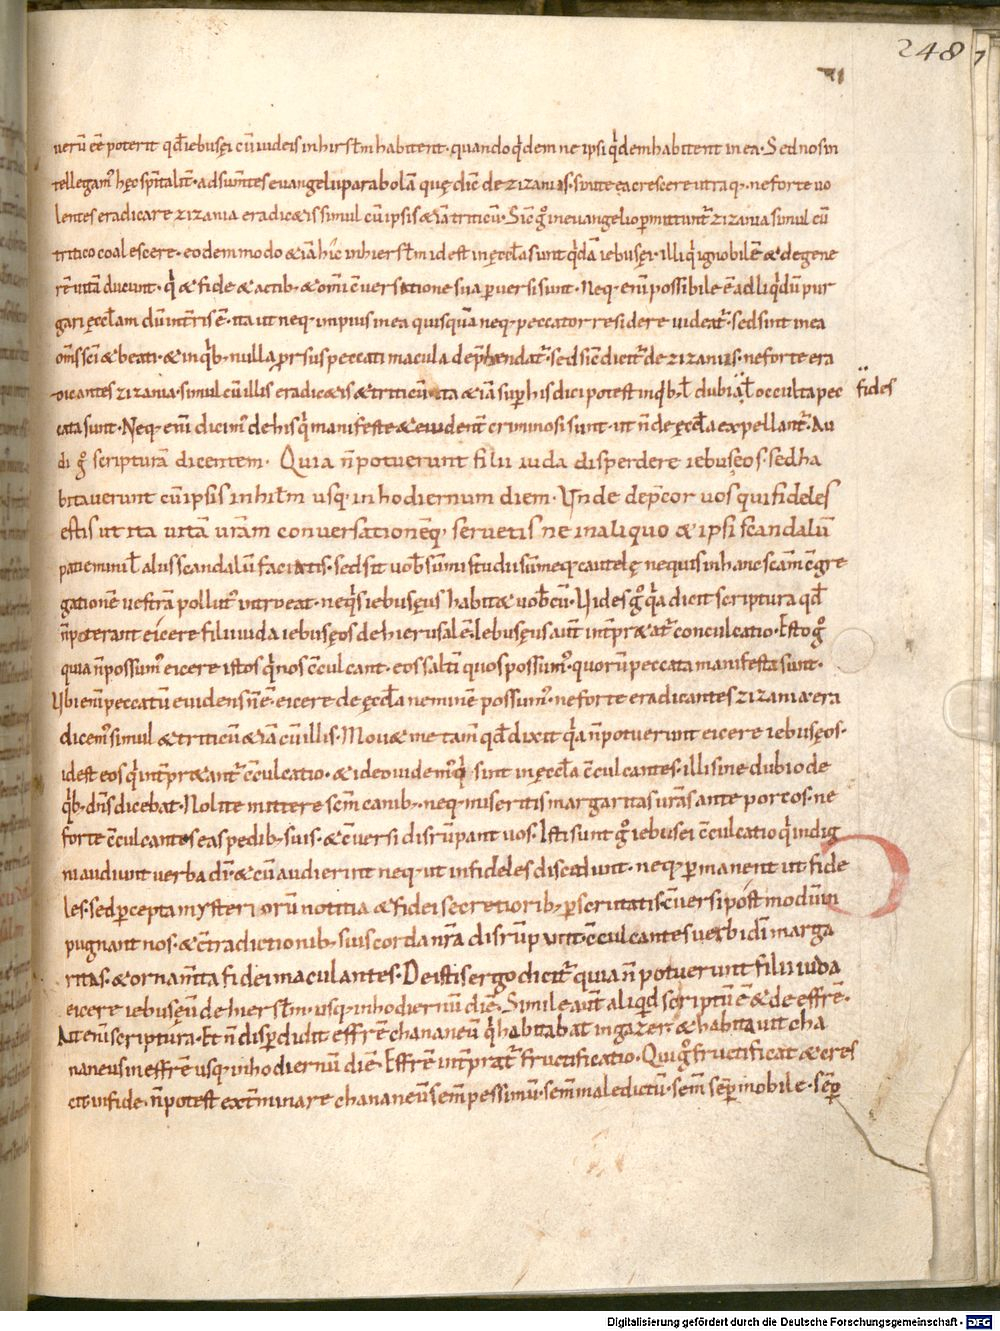 248
uerū eē poterit qđ iebusęi cū iudeis in hirsłm habitent. quando q̇dem ne ipsi q̇dem habitent in ea. Sed nos in
tellegam᾽ hęc spiritalit̄. adsum̄tes euangelii parabolā quę dic̄ de zizaniis. sinite ea crescere utraq;. ne forte uo
lentes eradicare zizania eradic&is simul cū ipsis &iā triticū. Sic̄ gͦ in euangelio ꝑmittunt᷑ zizania simul cū
tritico coalescere. eodem modo &iā hic in hiersłm id est in ęcclā sunt q̇dā iebusęi. illi q̇ ignobilē & degene
rē uitā ducunt. q̇ & fide & actib; & om̄i c̄uersatione sua ꝑuersi sunt. Neq; enī possibile ē ad liq̇dū pur
gari ęcclam dū in tr̄is ē. ita ut neq; impius in ea quisquā neq; peccator residere uideat᷑. sed sint in ea
om̄s sc̄i & beati. & in q̇b; nulla ꝓrsus peccati macula dep̄hendat᷑. sed sic̄ dicit᷑ de zizaniis. ne forte era
dicantes zizania. simul cū illis eradic&is & triticū. ita &iā suꝑ his dici potest in q̇b; ł dubia ł occulta pec
fides
cata sunt. Neq; enī dicim᾽ de his q̇ manifeste & euident̄ criminosi sunt. ut n̄ de ęcclā expellant᷑. Au
di gͦ scripturā dicentem. Quia n̄ potuerunt filii iuda disperdere iebuseos. sed ha
bitauerunt cū ipsis in hiłm usq; in hodiernum diem. Unde dep̄cor uos qui fideles
estis ut ita uitā ur̄am conuersationēq; seruetis ne in aliquo & ipsi scandalū
patiemini ł aliis scandalū faciatis. sed sit uob̄ summi studii summęq; cautelę ne quis in hanc sc̄am c̄gre
gationē uestrā pollut᾽ introeat. neq̇s iebusęus habit& uobc̄ū. Uides gͦ q̇a dicit scriptura qđ
n̄ poterant eicere filii iuda iebusęos de hierusalē. Iebusęus aut̄ int̄pr&at᷑ conculcatio. Esto gͦ
quia n̄ possum᾽ eicere istos q̇ nos c̄culcant. eos salti quos possum᾽. quorū peccata manifesta sunt.
Ubi enī peccatū euidens n̄ ē. eicere de ęcclā neminē possum᾽. ne forte eradicantes zizania. era
dicem᾽ simul & triticū &iā cū illis. Mou& me tam̄ qđ dixit q̇a n̄ potuerunt eicere iebusęos.
id est eos q̇ int̄pr&ant᷑ c̄culcatio. & ideo uidem᾽ q̇ sint in ęcclā c̄culcantes. illi sine dubio de
q̇b; dn̄s dicebat. Nolite mittere sc̄m canib;. neq; miseritis margaritas ur̄as ante porcos. ne
forte c̄culcantes eas pedib; suis. & c̄uersi disrūpant uos. Isti sunt gͦ iebusei c̄culcatio q̇ indig
ni audiunt uerba dī. & cū audierint neq; ut infideles discedunt. neq; ꝑmanent ut fide
les. sed ꝑcepta mysteriorū notitia & fidei secretiorib; ꝑscrutatis. c̄uersi postmodū in
pugnant nos. & c̄tradictionib; suis corda nr̄a disrūpunt. c̄culcantes uerbi dī marga
ritas. & ornam̄ta fidei maculantes. De istis ergo dicit᷑ quia n̄ potuerunt filii iuda
eicere iebusęū de hiersłm. usq; in hodiernū diē. Simile aut̄ aliqđ scriptū ē & de effrē.
Ait enī scriptura. Et n̄ disꝑdidit effrē chananeū q̇ habitabat in gazer. & habitauit cha
naneus in effrē usq; in hodiernū diē. Effrē int̄prat᷑ fructificatio. Qui gͦ fructificat & cres
cit in fide. n̄ potest ext̄minare chananeū. sem̄ pessimū. sem̄ maledictū. sem̄ seꝑ mobile. seꝑ
Digitalisierung gefördert durch die Deutsche Forschungsgemeinschaft - DFG